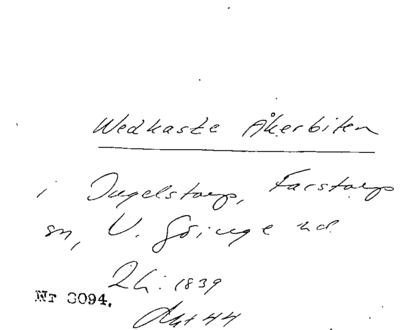 Wedkaste Åkerbiten
i Ingelstorp, Farstorps
sn, V. Göinge hd.
Lh. 1839
Nr 3094.
Akt 44